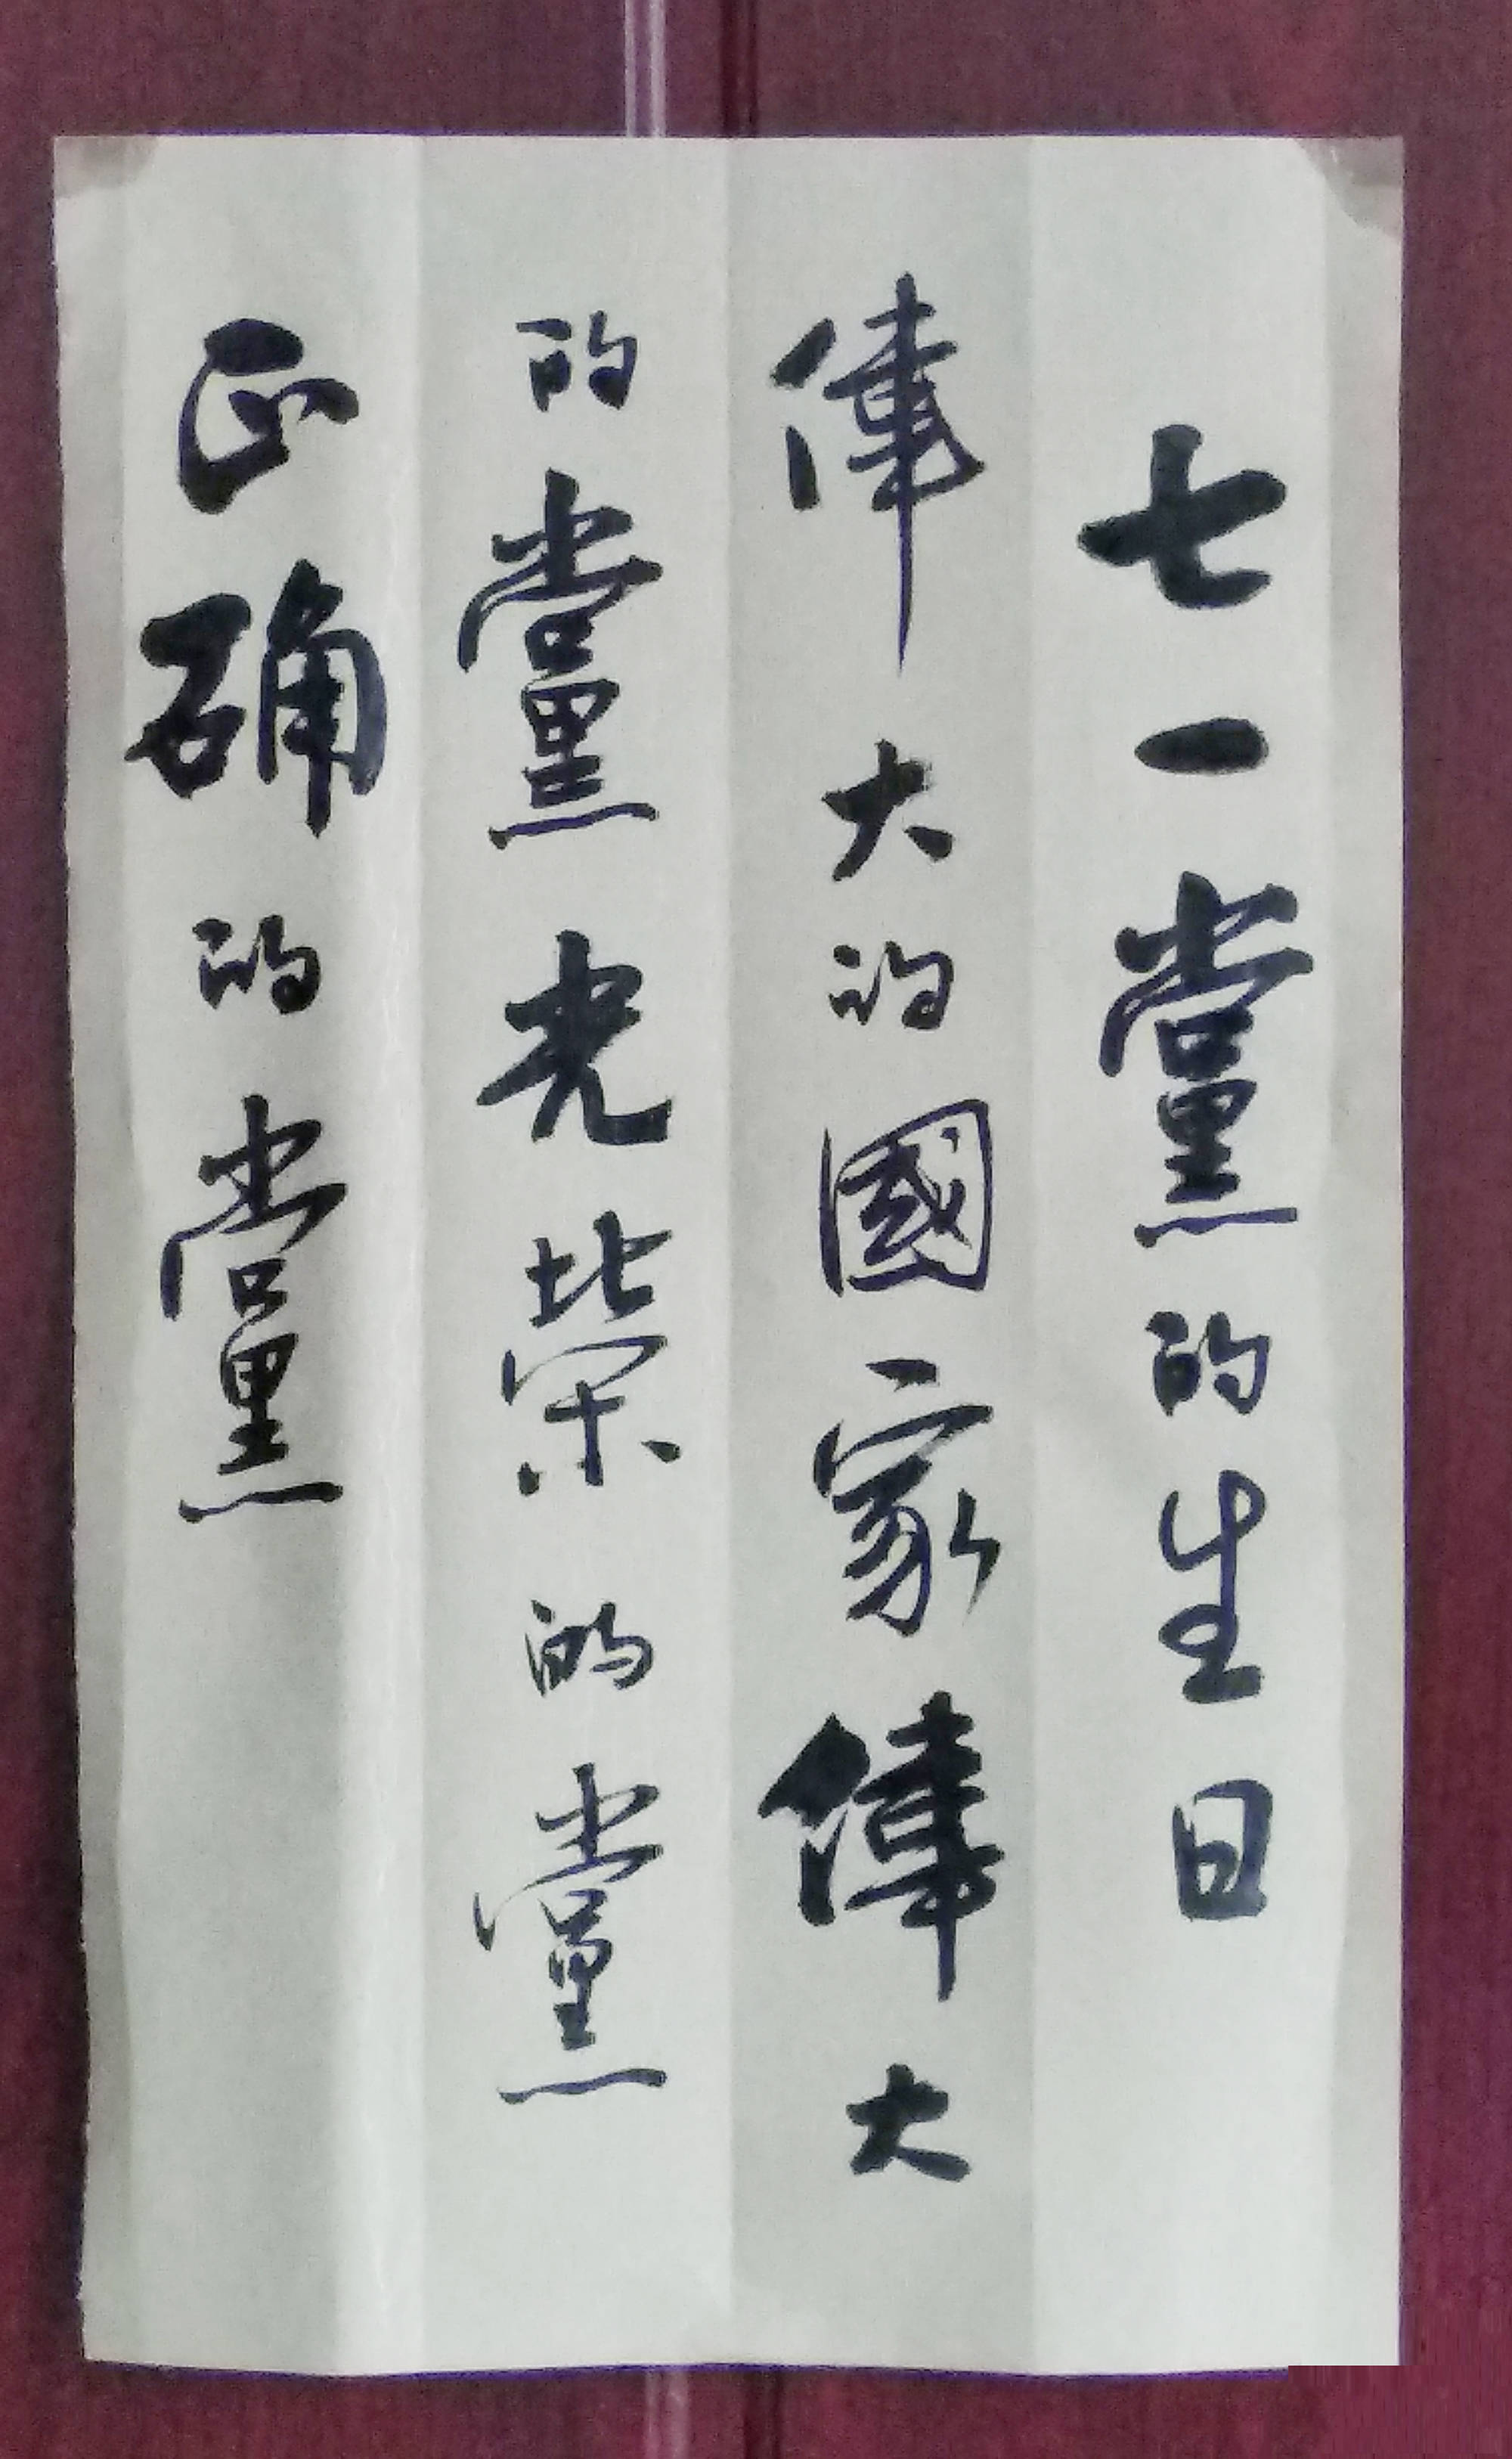 七一黨的生日
偉大的國家偉大
的黨光榮的黨
正确的黨